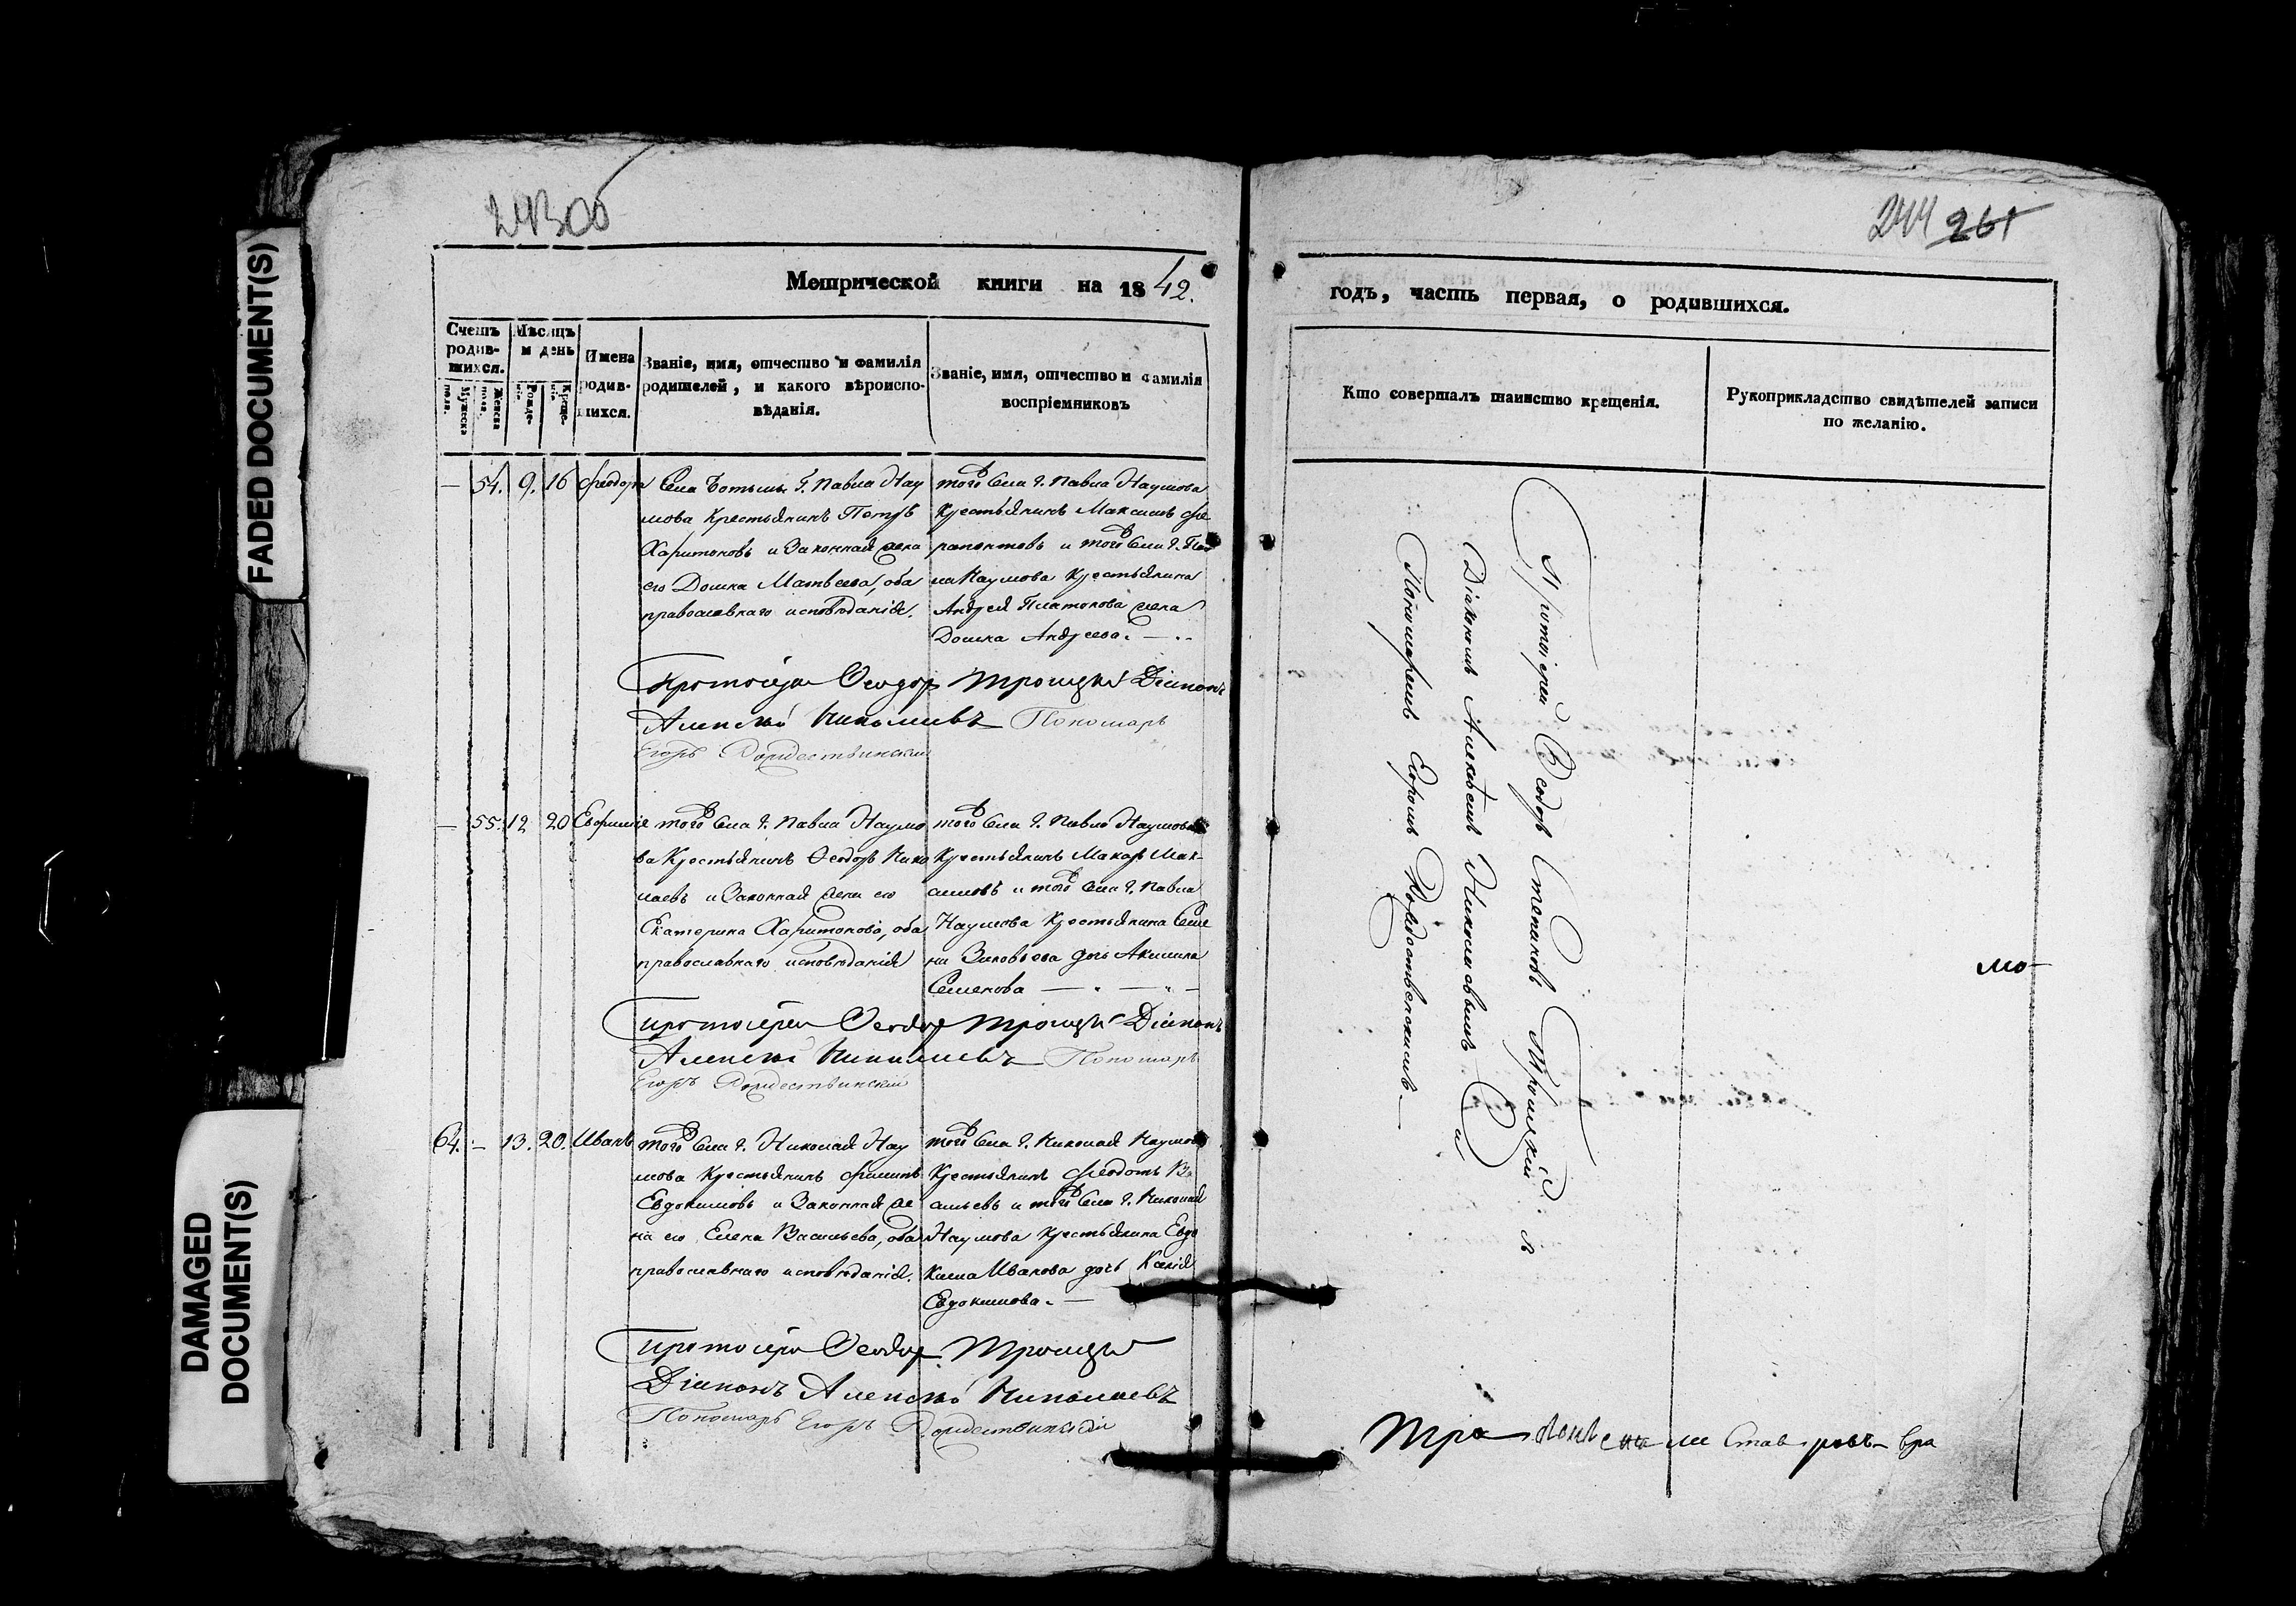 243об
244 261
FADED DOCUMENT(S)
DAMAGED
DOCUMENT(S)
Метрической книги на 1842.
годъ, часть первая, о родившихся.
Счетъ
родив-
шихся.
Мужеска
пола.
Женска
пола.
Мѣсяцъ
и день
Рожде-
нія
Креще-
нія
Имена
родив-
шихся.
Званіе, имя, отчество и фамилія
родителей, и какого вѣроиспо-
вѣданія.
Званіе, имя, отчество и фамилія
воспріемниковъ
Кто совершалъ таинство крещенія.
Рукоприкладство свидѣтелей записи
по желанію.
— 54. 9. 16 Феодора
Села Г. Павла Нау
мова Крестьянинъ Петръ
Харитоновъ и Законная жена
его Домна Матвеева, оба
православнаго исповѣданія.
того Села Г. Павла Наумова
Крестьянинъ Максимъ Фе
рапонтовъ и того Села Г. Пав
ла Наумова Крестьянина
Андрея Платонова жена
Домна Андреева. —
Протоіерей Феодор Троицкій Діаконъ
Алексѣй Николаевъ Пономарь
Егоръ Рождественскій
— 55. 12 20 Евфимія
того Села Г. Павла Наумо
ва Крестьянинъ Феодоръ Нико
лаевъ и Законная жена его
Екатерина Харитонова, оба
православнаго исповѣданія
того Села Г. Павла Наумова
Крестьянинъ Макаръ Мак-
симовъ и того Села Г. Павла
Наумова Крестьянина Семе
на Зиновьева дочь Акилина
Семенова —
Протоіерей Феодор Троицкій Діаконъ
Алексѣй Николаевъ Пономарь
Егоръ Рождественскій
64. — 13. 20. Иванъ
того Села Г. Николая Нау
мова Крестьянинъ Филипъ
Евдокимовъ и Законная же
на его Елена Васильева, оба
православнаго исповѣданія.
того Села Г. Николая Наумова
Крестьянинъ Феодотъ Ва
сильевъ и того Села Г. Николая
Наумова Крестьянина Евдо
кима Иванова дочь Ксенія
Евдокимова. —
Протоіерей Феодор Троицкій
Діаконъ Алексѣй Николаевъ
Пономарь Егоръ Рождественскій
Протоіерей Феодоръ Стефановъ Троицкій съ
Діакономъ Алексѣемъ Николаевымъ и
Пономаремъ Егоромъ Рождественскимъ —
мо-